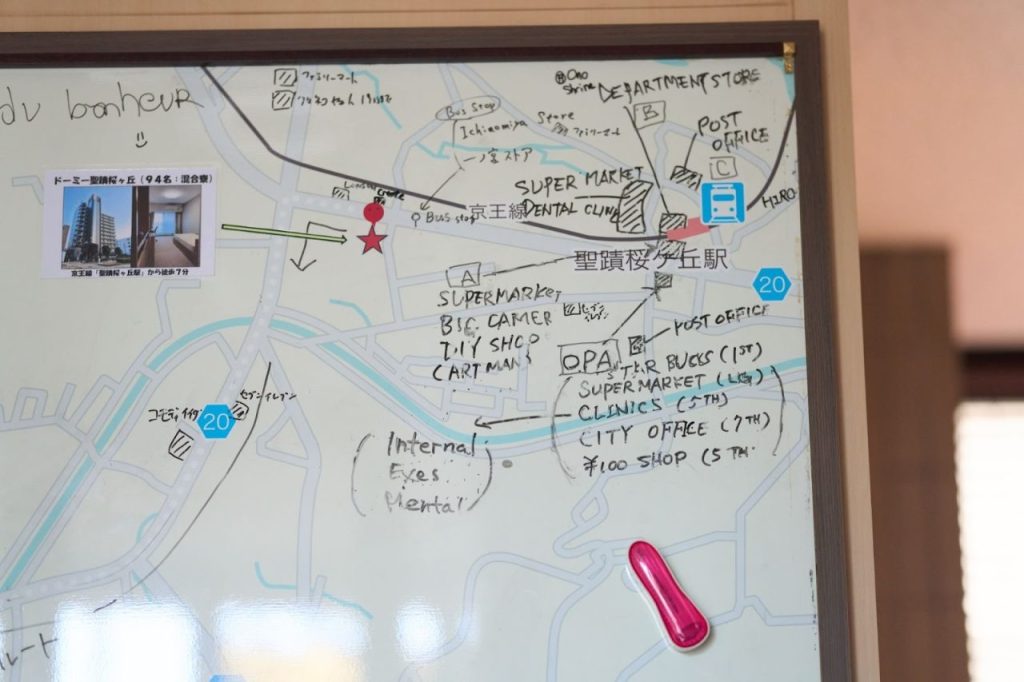 du bonheur
ファミリーマート
Ono
Shrine
DEPARTMENT STORE
B
Bus Stop
Ichinomiya Store
ファミリーマート
一ノ宮ストア
POST
OFFICE
C
ドーミー聖蹟桜ヶ丘(94名:混合寮)
京王線「聖蹟桜ヶ丘駅」から徒歩7分
Create
Bus stop
京王線
SUPER MARKET
DENTAL CLINIC
聖蹟桜ケ丘駅
20
A
SUPERMARKET
BIC CAMER
DIY SHOP
セブンイレブン
POST OFFICE
OPA
STAR BUCKS (1ST)
SUPERMARKET
CLINICS (5TH)
CITY OFFICE (7TH)
¥100 SHOP (5TH
セブンイレブン
20
Internal
Eyes
Mental
ルート